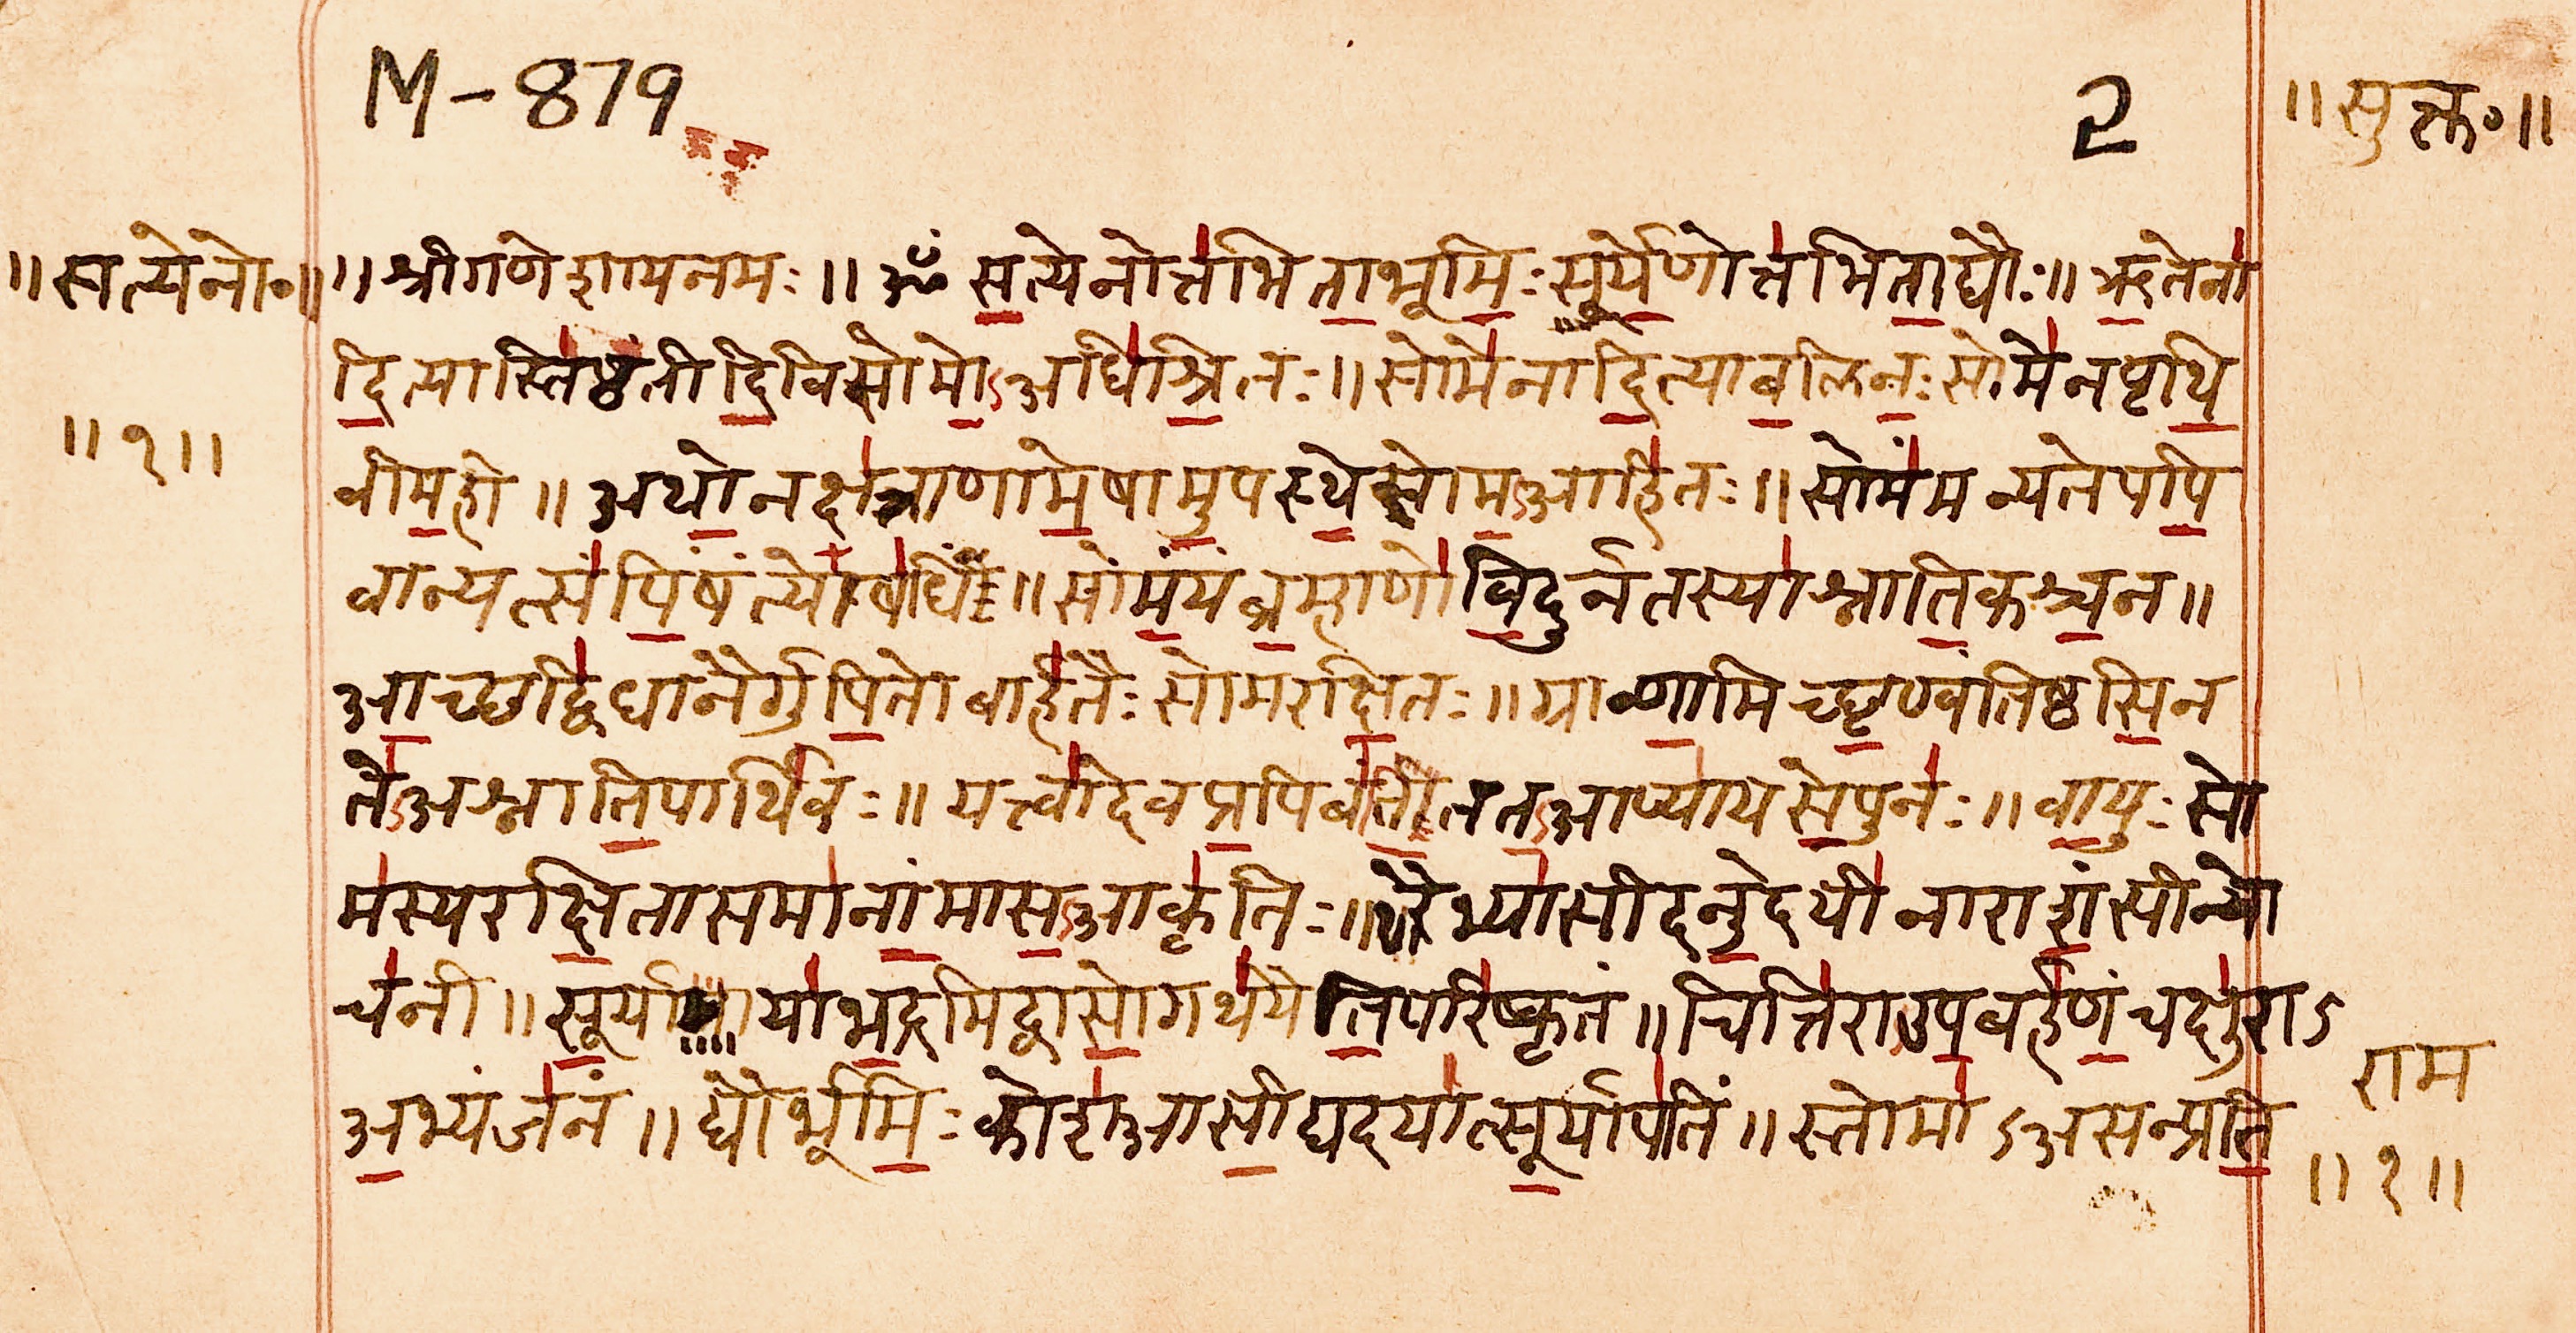 M-879
2
॥सुक्त॰॥
॥सत्येनो॰॥
॥श्रीगणेशायनमः॥ॐ सत्येनोत्तभिताभूमिः सूर्येणोत्तभिताद्यौः॥ऋतेना
दित्यास्तिष्ठंतीदिविसोमोऽअधिश्रितः॥सोमेनादित्याबलिनः सोमेनपृथि
॥१॥
वीमही॥अथोनक्षत्राणामेषामुपस्थेसोमऽआहितः॥सोमंमन्यतेपपि
वान्यत्संपिंषंत्योषधिं॥सोमंयंब्रह्माणोविदुर्नतस्याश्नातिकश्चन॥
आच्छद्विधानैर्गुपितोबार्हतैः सोमरक्षितः॥ग्राव्णामिच्छृण्वंतिष्ठसिन
तेऽअश्नातिपार्थिवः॥यत्त्वादेवप्रपिबंतीततऽआप्यायसेपुनः॥वायुः सो
मस्यरक्षितासमानांमासऽआकृतिः॥रैभ्यासीदनुदेयीनाराशंसीन्यो
चनी॥सूर्यायाभद्रमिद्वासोगाथयैतिपरिष्कृतं॥चित्तिराऽउपबर्हणंचक्षुराऽ
अभ्यंजनं॥द्यौर्भूमिः कोशआसीद्यदयात्सूर्यापतिं॥स्तोमाऽअसन्प्रति
राम
॥१॥